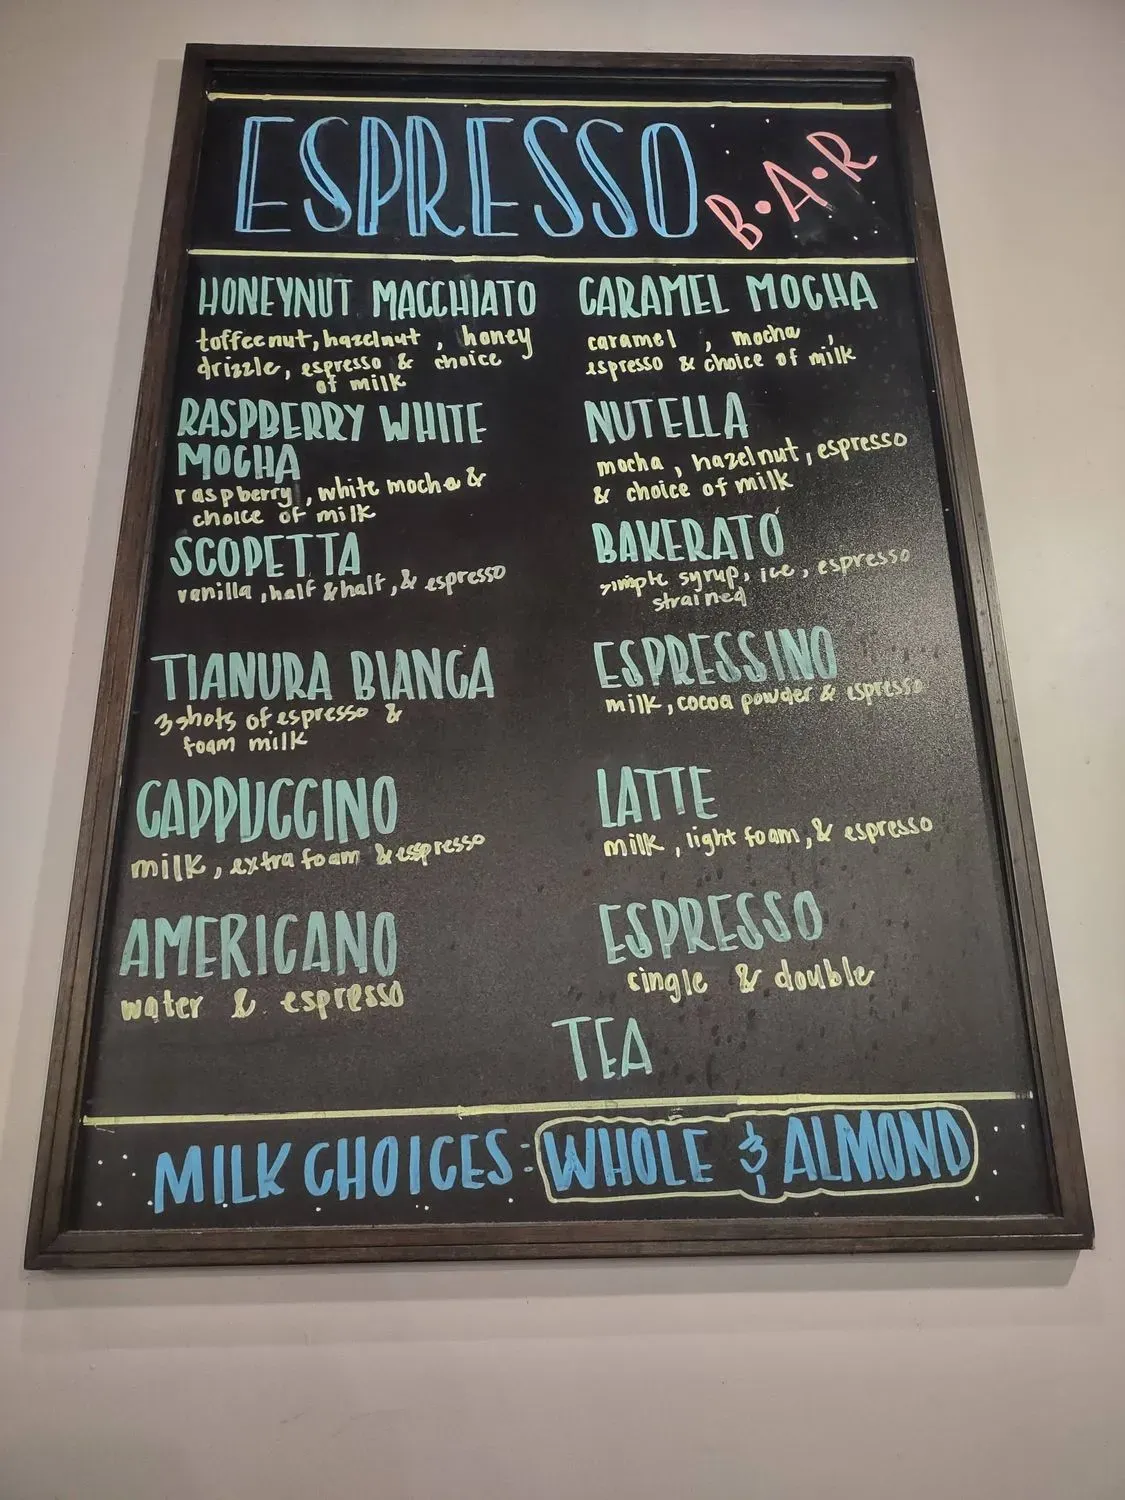 ESPRESSO B•A•R
HONEYNUT MACCHIATO
toffeenut, hazelnut, honey
drizzle, espresso & choice
of milk
RASPBERRY WHITE
MOCHA
raspberry, white mocha &
choice of milk
SCOPETTA
vanilla, half & half, & espresso
TIANURA BIANCA
3 shots of espresso &
foam milk
CAPPUCCINO
milk, extra foam & esspresso
AMERICANO
water & espresso
CARAMEL MOCHA
caramel, mocha,
espresso & choice of milk
NUTELLA
mocha, hazelnut, espresso
& choice of milk
BAKERATO
simple syrup, ice, espresso
strained
ESPRESSINO
milk, cocoa powder & espresso
LATTE
milk, light foam, & espresso
ESPRESSO
cingle & double
TEA
MILK CHOICES: WHOLE & ALMOND